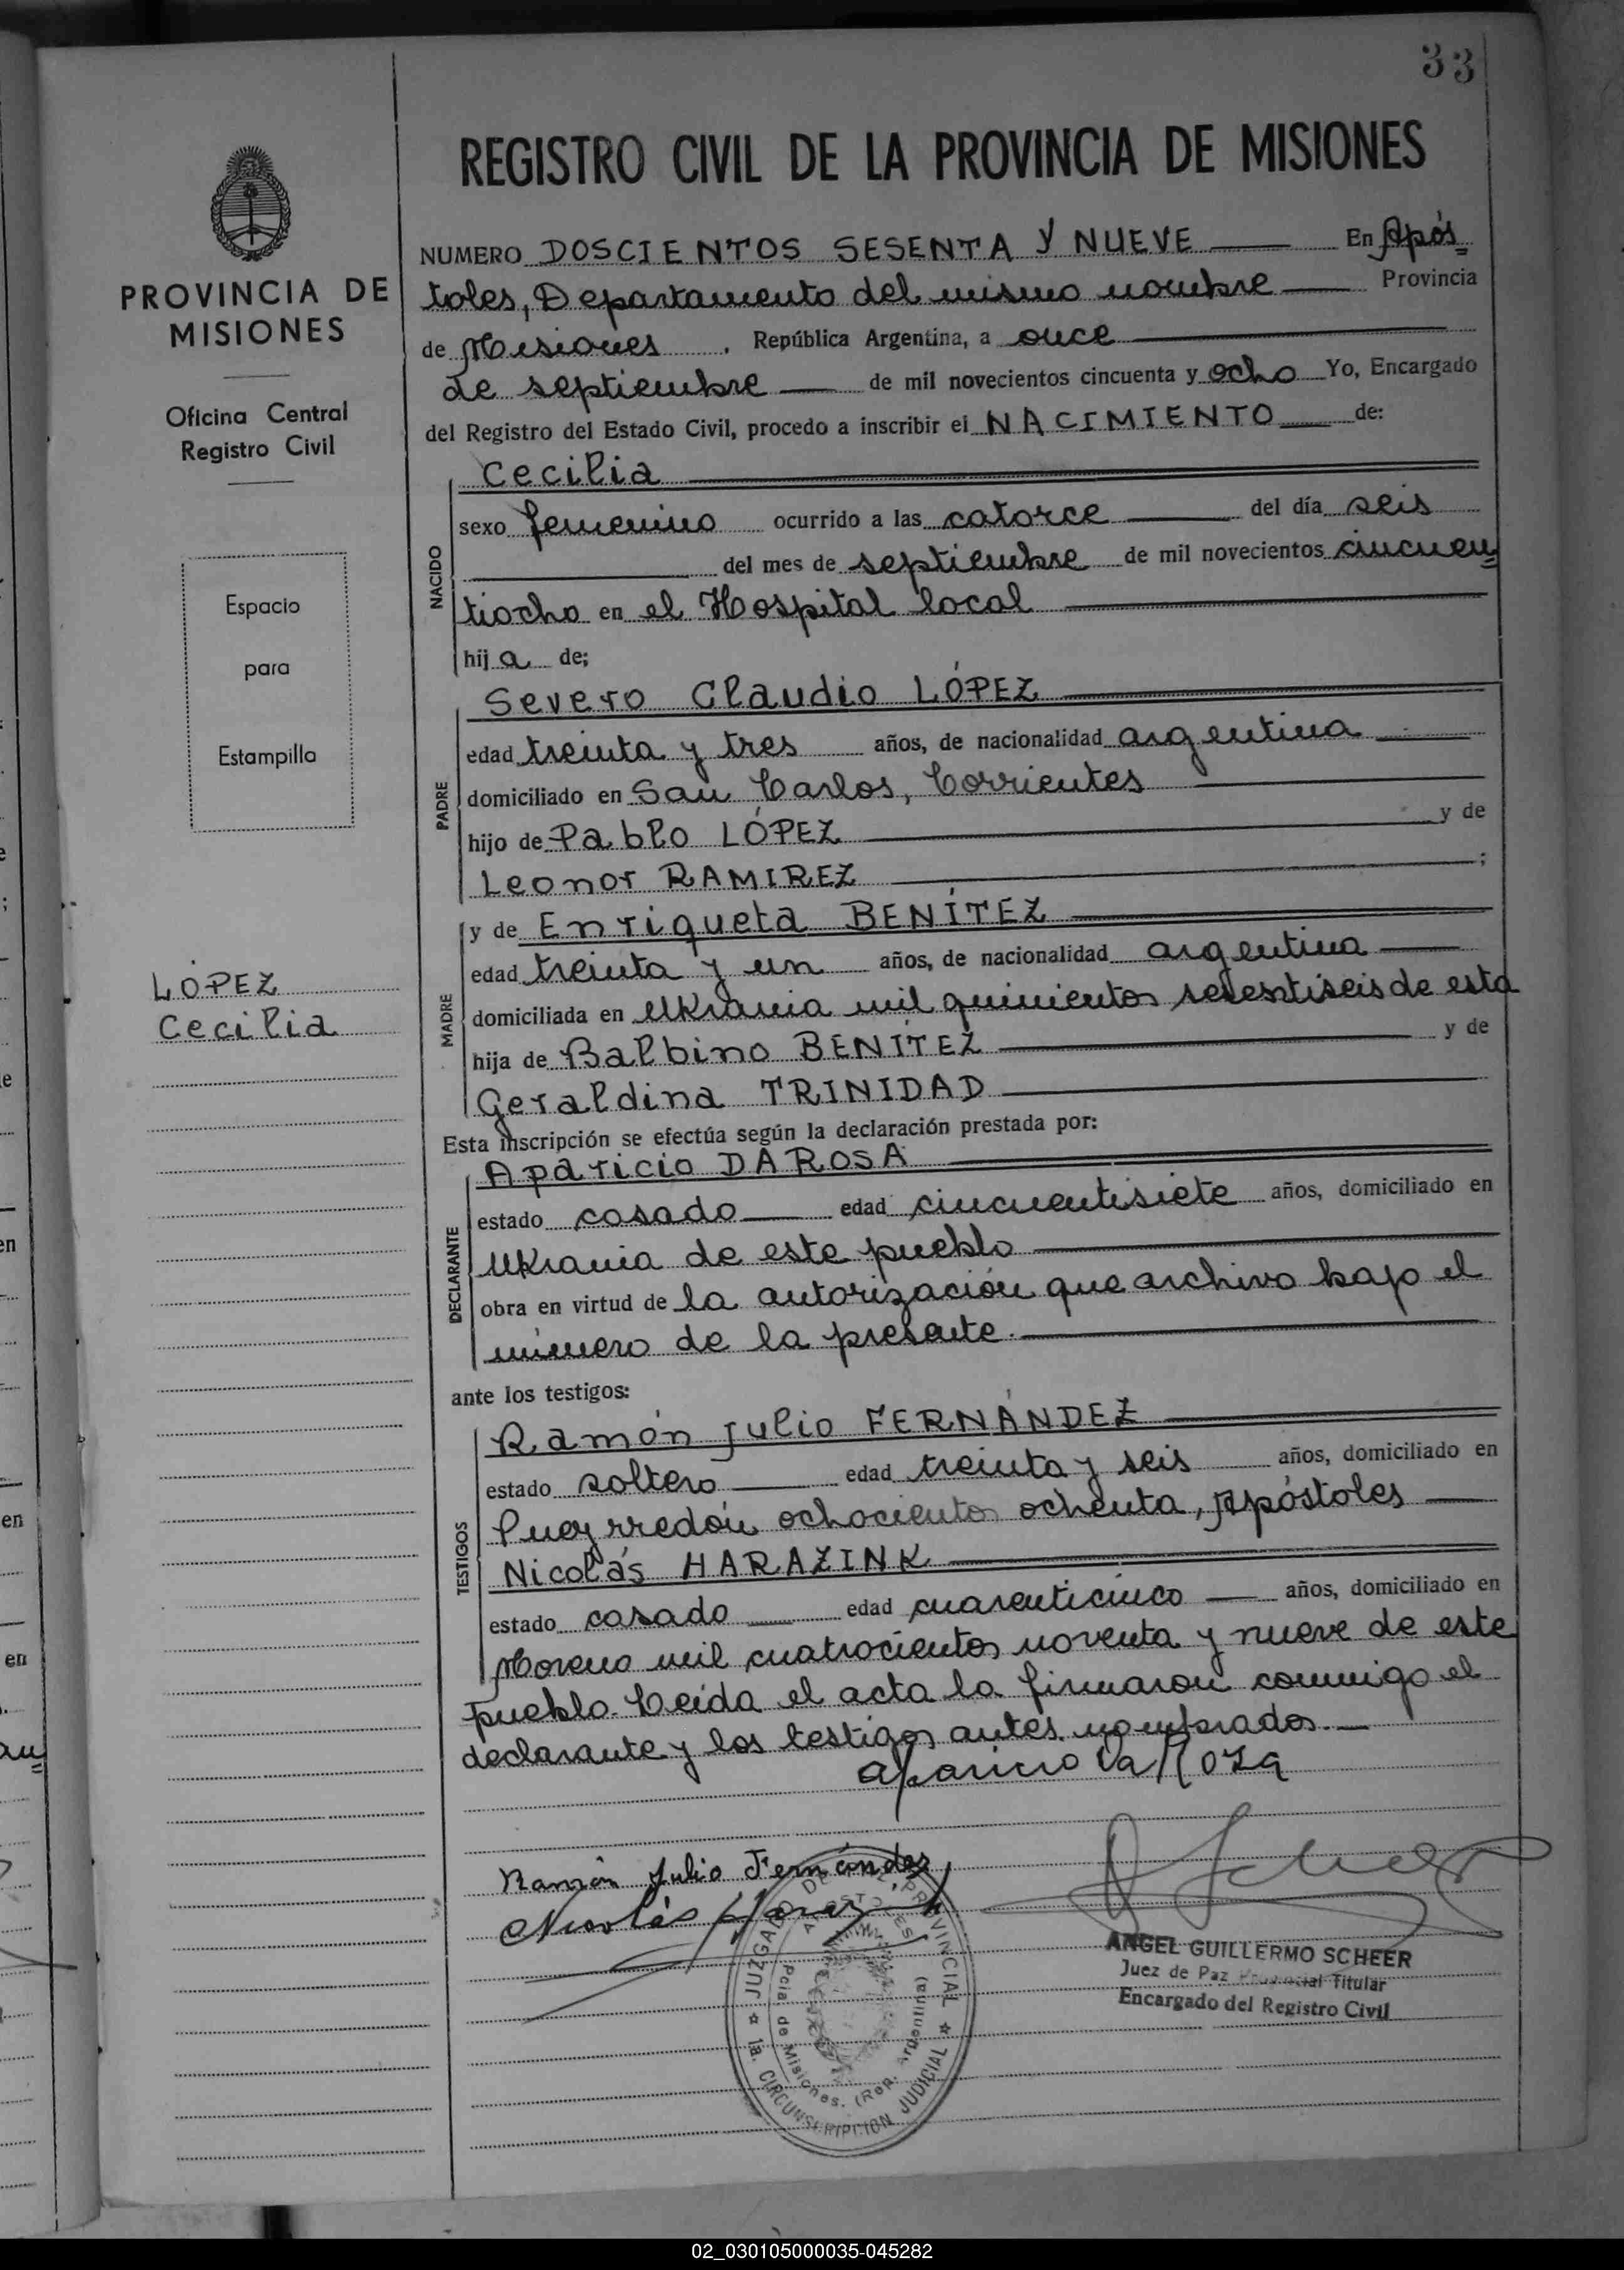 33
REGISTRO CIVIL DE LA PROVINCIA DE MISIONES
PROVINCIA DE
MISIONES
Oficina Central
Registro Civil
Espacio
para
Estampilla
LÓPEZ
Cecilia
NUMERO DOSCIENTOS SESENTA Y NUEVE En Após=
toles, Departamento del mismo nombre Provincia
de Misiones, República Argentina, a once
de septiembre de mil novecientos cincuenta y ocho Yo, Encargado
del Registro del Estado Civil, procedo a inscribir el NACIMIENTO de:
NACIDO
Cecilia
sexo femenino ocurrido a las catorce del día seis
del mes de septiembre de mil novecientos cincuen=
tiocho en el Hospital local
hija de;
PADRE
Severo Claudio LÓPEZ
edad treinta y tres años, de nacionalidad argentina
domiciliado en San Carlos, Corrientes
hijo de Pablo LÓPEZ y de
Leonor RAMIREZ ;
MADRE
y de Enriqueta BENÍTEZ
edad treinta y un años, de nacionalidad argentina
domiciliada en Ukrania mil quinientos de esta
hija de Balbino BENÍTEZ y de
Geraldina TRINIDAD
Esta inscripción se efectúa según la declaración prestada por:
DECLARANTE
Aparicio DA ROSA
estado casado edad cincuentisiete años, domiciliado en
Ukrania de este pueblo
obra en virtud de la autorización que archivo bajo el
número de la presente.
ante los testigos:
TESTIGOS
Ramón Julio FERNÁNDEZ
estado soltero edad treinta y seis años, domiciliado en
Pueyrredón ochocientos ochenta, Apóstoles
Nicolás HARAZINK
estado casado edad cuarenticinco años, domiciliado en
Moreno mil cuatrocientos noventa y nueve de este
pueblo. Leída el acta la firmaron conmigo el
declarante y los testigos antes nombrados.
Aparicio Da Roza
Ramón Julio Fernández
Nicolás
JUZGADO DE PAZ PROVINCIAL
APOSTOLES
Pcia. de Misiones. (Rep. Argentina)
1a. CIRCUNSCRIPCION JUDICIAL
ANGEL GUILLERMO SCHEER
Juez de Paz Provincial Titular
Encargado del Registro Civil
02_030105000035-045282